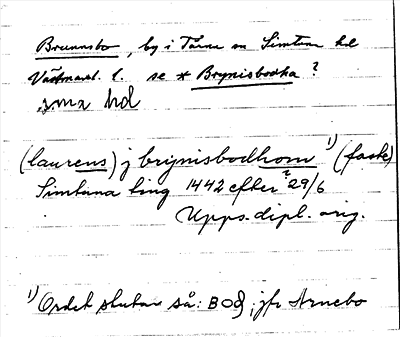 Brunnsbo, by i Tärna sn Simtuna hd
Västmanl. l. se * Brynisbodha ?
sma hd
(laurens) j brijnisbodhom ¹⁾ (faste)
Simtuna ting 1442 efter 29/6 ?
Upps. dipl. orig.
¹⁾ Ordet slutar så: BOδ, jfr Arnebo